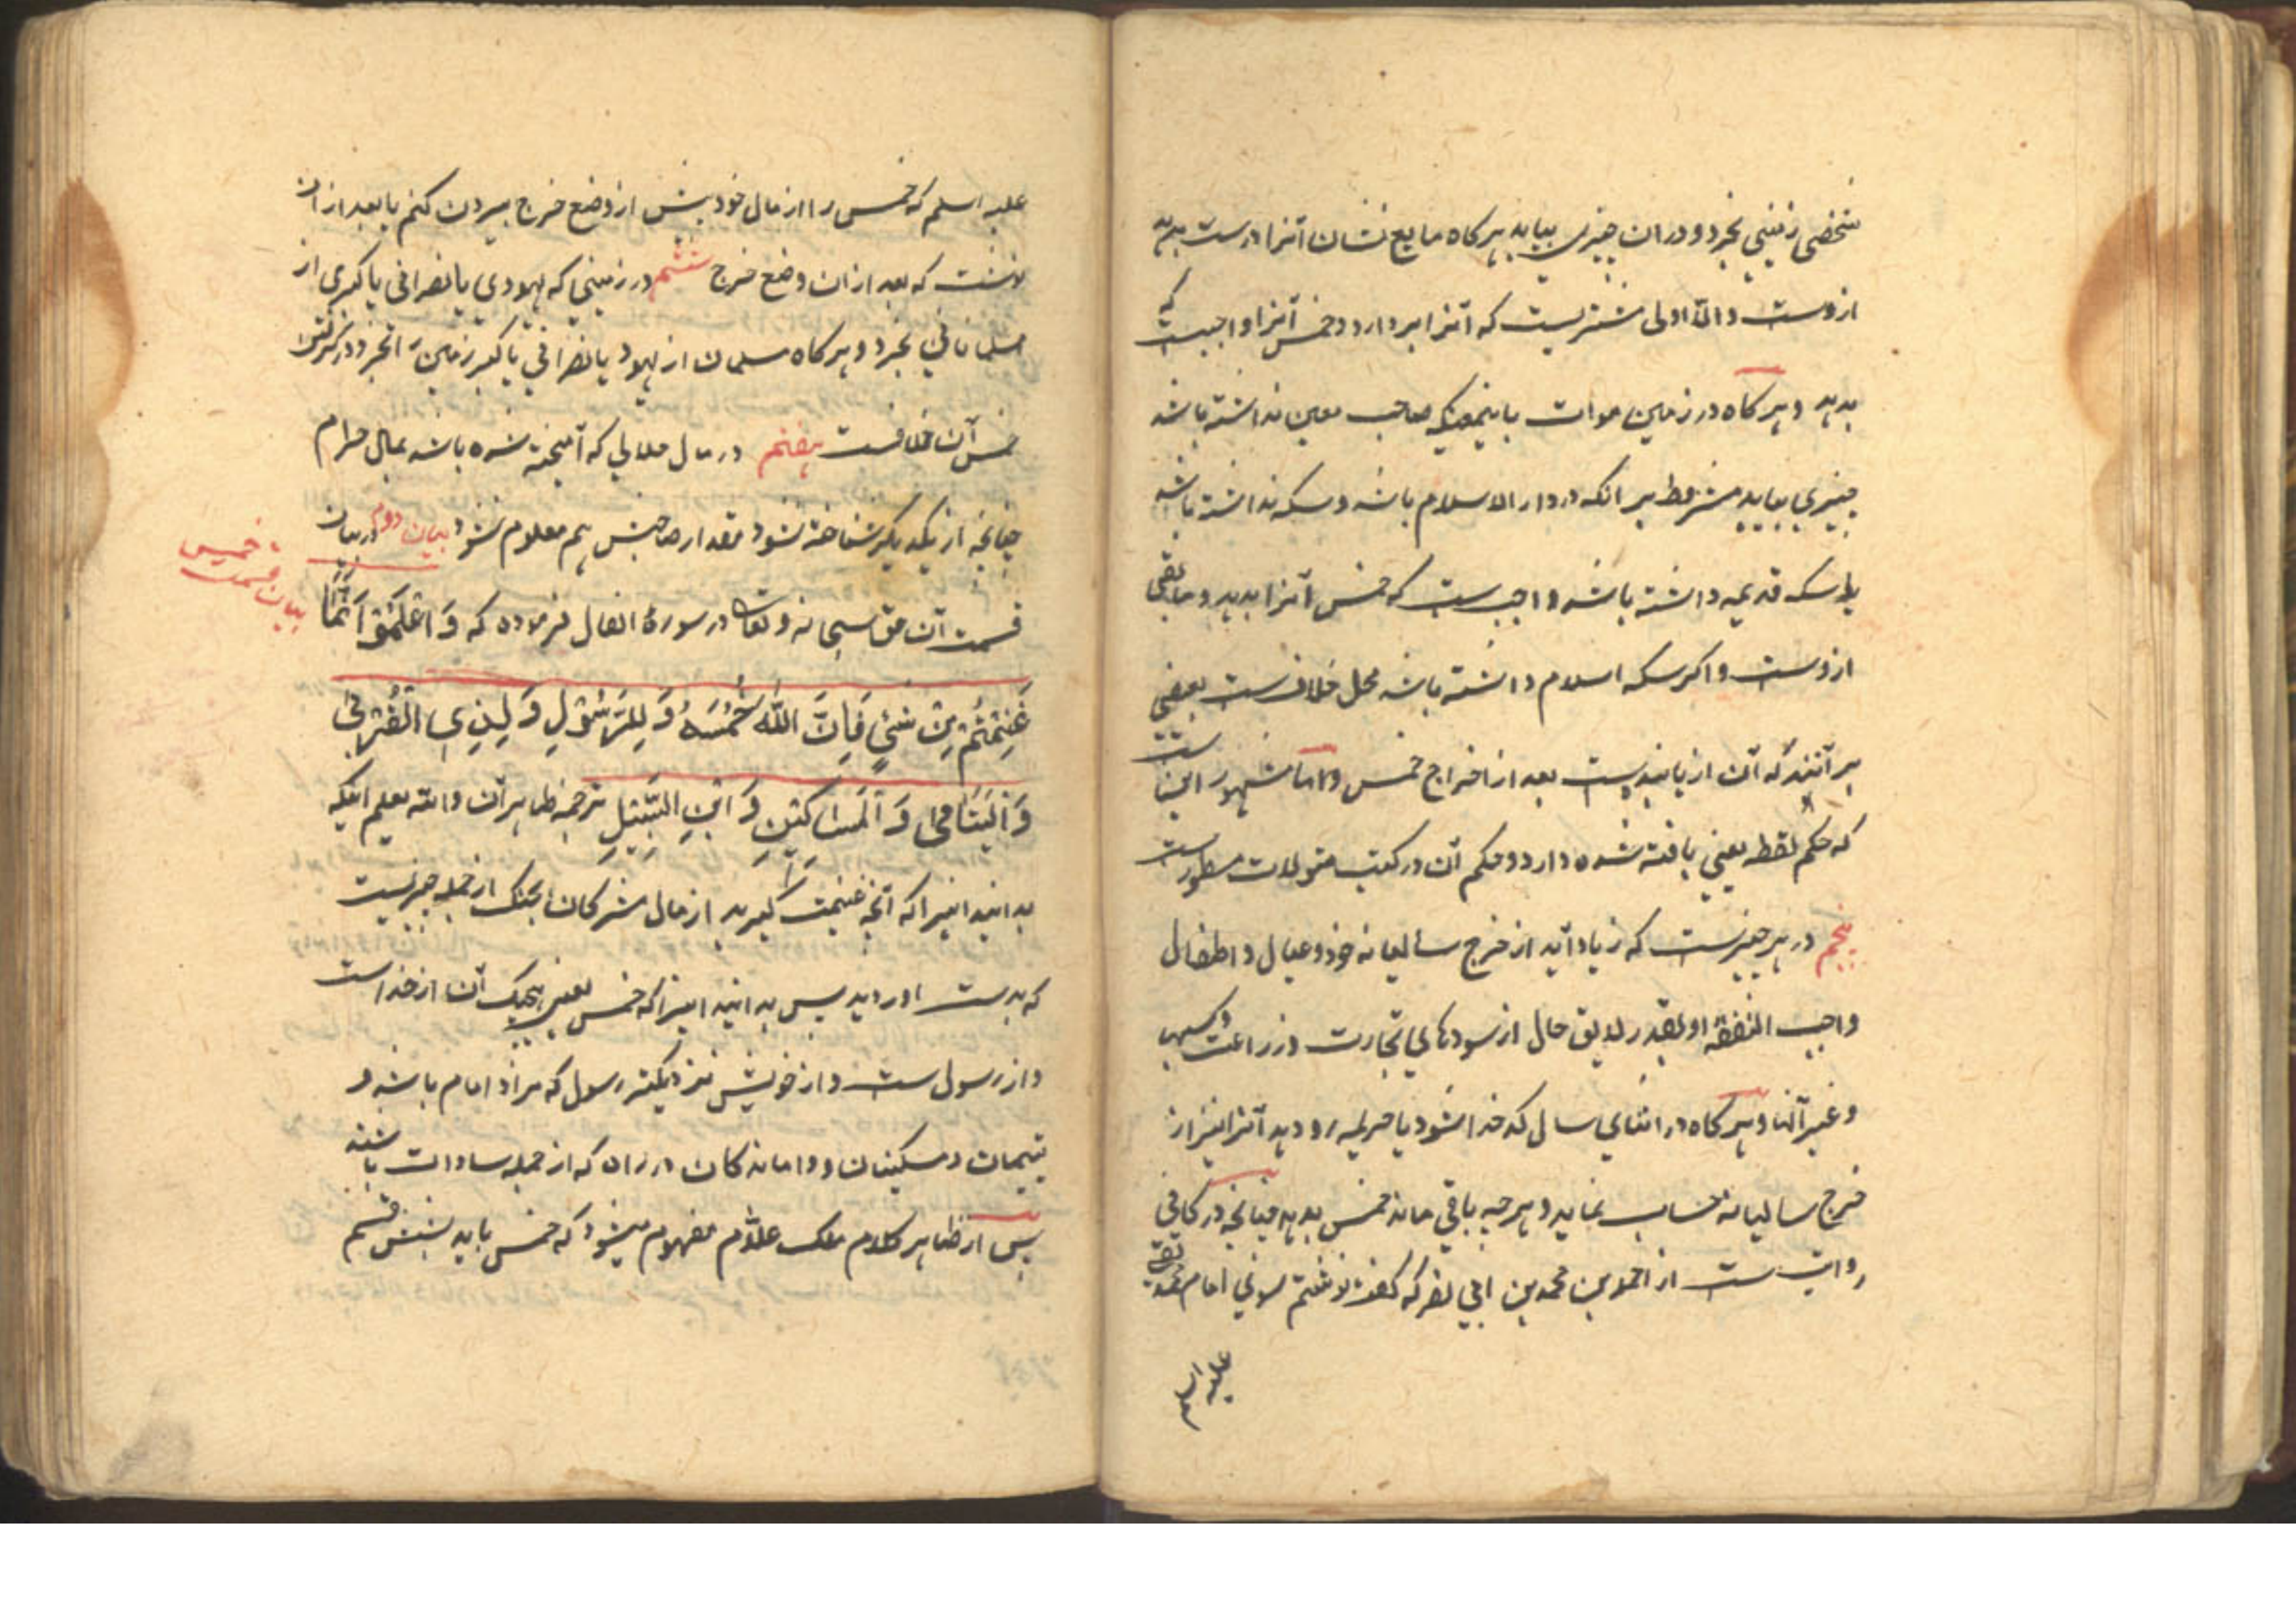 شخصی زمینی بخرد و در ان چیزی بیابد هرکاه بایع نشان آنرا درست بدهد
از وست والّا اولی مشتریست که آنرا بردارد و خمس آنرا واجبست که
بدهد و هرکاه در زمین موات یا زمینیکه صاحب معین نداشته باشد
چیزی بیابد مشروط بر انکه در دار الاسلام باشد و سکه نداشته باشد
یا سکه قدیمه داشته باشد واجب ست که خمس آنرا بدهد و مابقی
ازوست و اکر سکه اسلام داشته باشد محل خلاف ست بعضی
بر آنند که آن از یابنده ست بعد از اخراج خمس و اما مشهور اینست
که حکم لقطه یعنی یافته شده دارد و حکم آن در کتب مسطورست
پنجم در هر چیزیست که زیاد آید از خرج سالیانه خود و عیال و اطفال
واجب النفقهٔ او بقدر لایق حال از سودهای تجارت و زراعت و کسب
و غیر آنها و هرکاه در اثنای سال کدخدا شود یا رود آنرا نیز از
خرج سالیانه حساب نماید و هرچه باقی ماند خمس بدهد چنانچه در کافی
روایت ست از احمد بن محمد بن ابی نصر که کفت نوشتم سوی امام محمد تقی
علیه اسلم
علیه اسلم که خمس را از مال خود پیش از وضع خرج بیرون کنم یا بعد از ان
نوشت که بعد از ان وضع خرج ششم در زمینی که یهودی یا نصرانی یا کبری از
مسلمانانی بخرد و هرکاه مسلمان از یهود یا نصرانی یا کبر زمین را بخرد در کرفتن
خمس آن خلافست هفتم در مال حلالی که آمیخته شده باشد بمال حرام
چنانچه از یکدیکر شناخته نشود مقدار صاحبش هم معلوم نشود بیان دوم در بیان
بیان قسمت خمس
قسمت آن حق سبحانه و تعالی در سورهٔ انفال فرموده که وَاعْلَمُوْآ اَنَّمَا
غَنِمْتُمْ مِنْ شَیْءٍ فَاِنَّ اللّٰه خُمُسَهُ وَ لِلرَّسُوْلِ وَ لِذِی الْقُرْبٰی
وَ الْیَتَامٰی وَ الْمَسَاکِیْنِ وَ ابْنِ السَّبِیْلِ ترجمه ظاهر آن والله یعلم اینکه
بدانید اینرا که آنچه غنیمت کیرید از مال مشرکان بجنک از جمله چیزیست
که بدست اوردید پس بدانید اینرا که خمس یعنی پنجیک آن از خداست
و از رسول ست و از خویش نزدیکتر رسول که مراد امام باشد و
یتیمان و مسکینان و وامانده کان در راه که از جمله سادات باشند
پس از ظاهر کلام ملک علّام مفهوم میشود که خمس باید بشش قسم